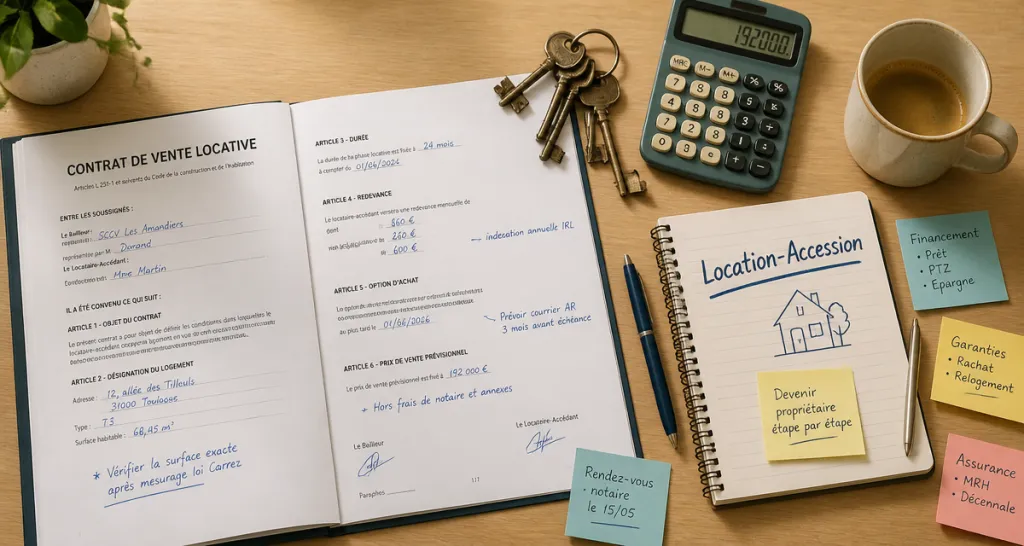 CONTRAT DE VENTE LOCATIVE
Articles L. 251-1 et suivants du Code de la construction et de l'habitation
ENTRE LES SOUSSIGNÉS :
Le Bailleur :
SCCV Les Amandiers
représentée par M. Durand
Le Locataire-Accédant :
Mme Martin
IL A ÉTÉ CONVENU CE QUI SUIT :
ARTICLE 1 - OBJET DU CONTRAT
Le présent contrat a pour objet de définir les conditions dans lesquelles le
ARTICLE 2 - DÉSIGNATION DU LOGEMENT
Adresse : 12, allée des Tilleuls
31000 Toulouse
Type : T3
Surface habitable : 68,45 m²
* Vérifier la surface exacte
après mesurage loi Carrez
ARTICLE 3 - DURÉE
La durée de la phase locative est fixée à 24 mois
à compter du 01/06/2024
ARTICLE 4 - REDEVANCE
Le locataire-accédant versera une redevance mensuelle de
860 €
260 €
600 €
indexation annuelle IRL
ARTICLE 5 - OPTION D'ACHAT
au plus tard le 01/06/2026
Prévoir courrier AR
3 mois avant échéance
ARTICLE 6 - PRIX DE VENTE PRÉVISIONNEL
Le prix de vente prévisionnel est fixé à 192 000 €
+ Hors frais de notaire et annexes
Le Bailleur
Le Locataire-Accédant
Paraphes
1/7
192000
MRC M- M+
Location-Accession
Devenir
propriétaire
étape par étape
Rendez-vous
- notaire
le 15/05
Financement
• Prêt
• PTZ
• Épargne
Garanties
• Rachat
• Relogement
Assurance
• MRH
• Décennale